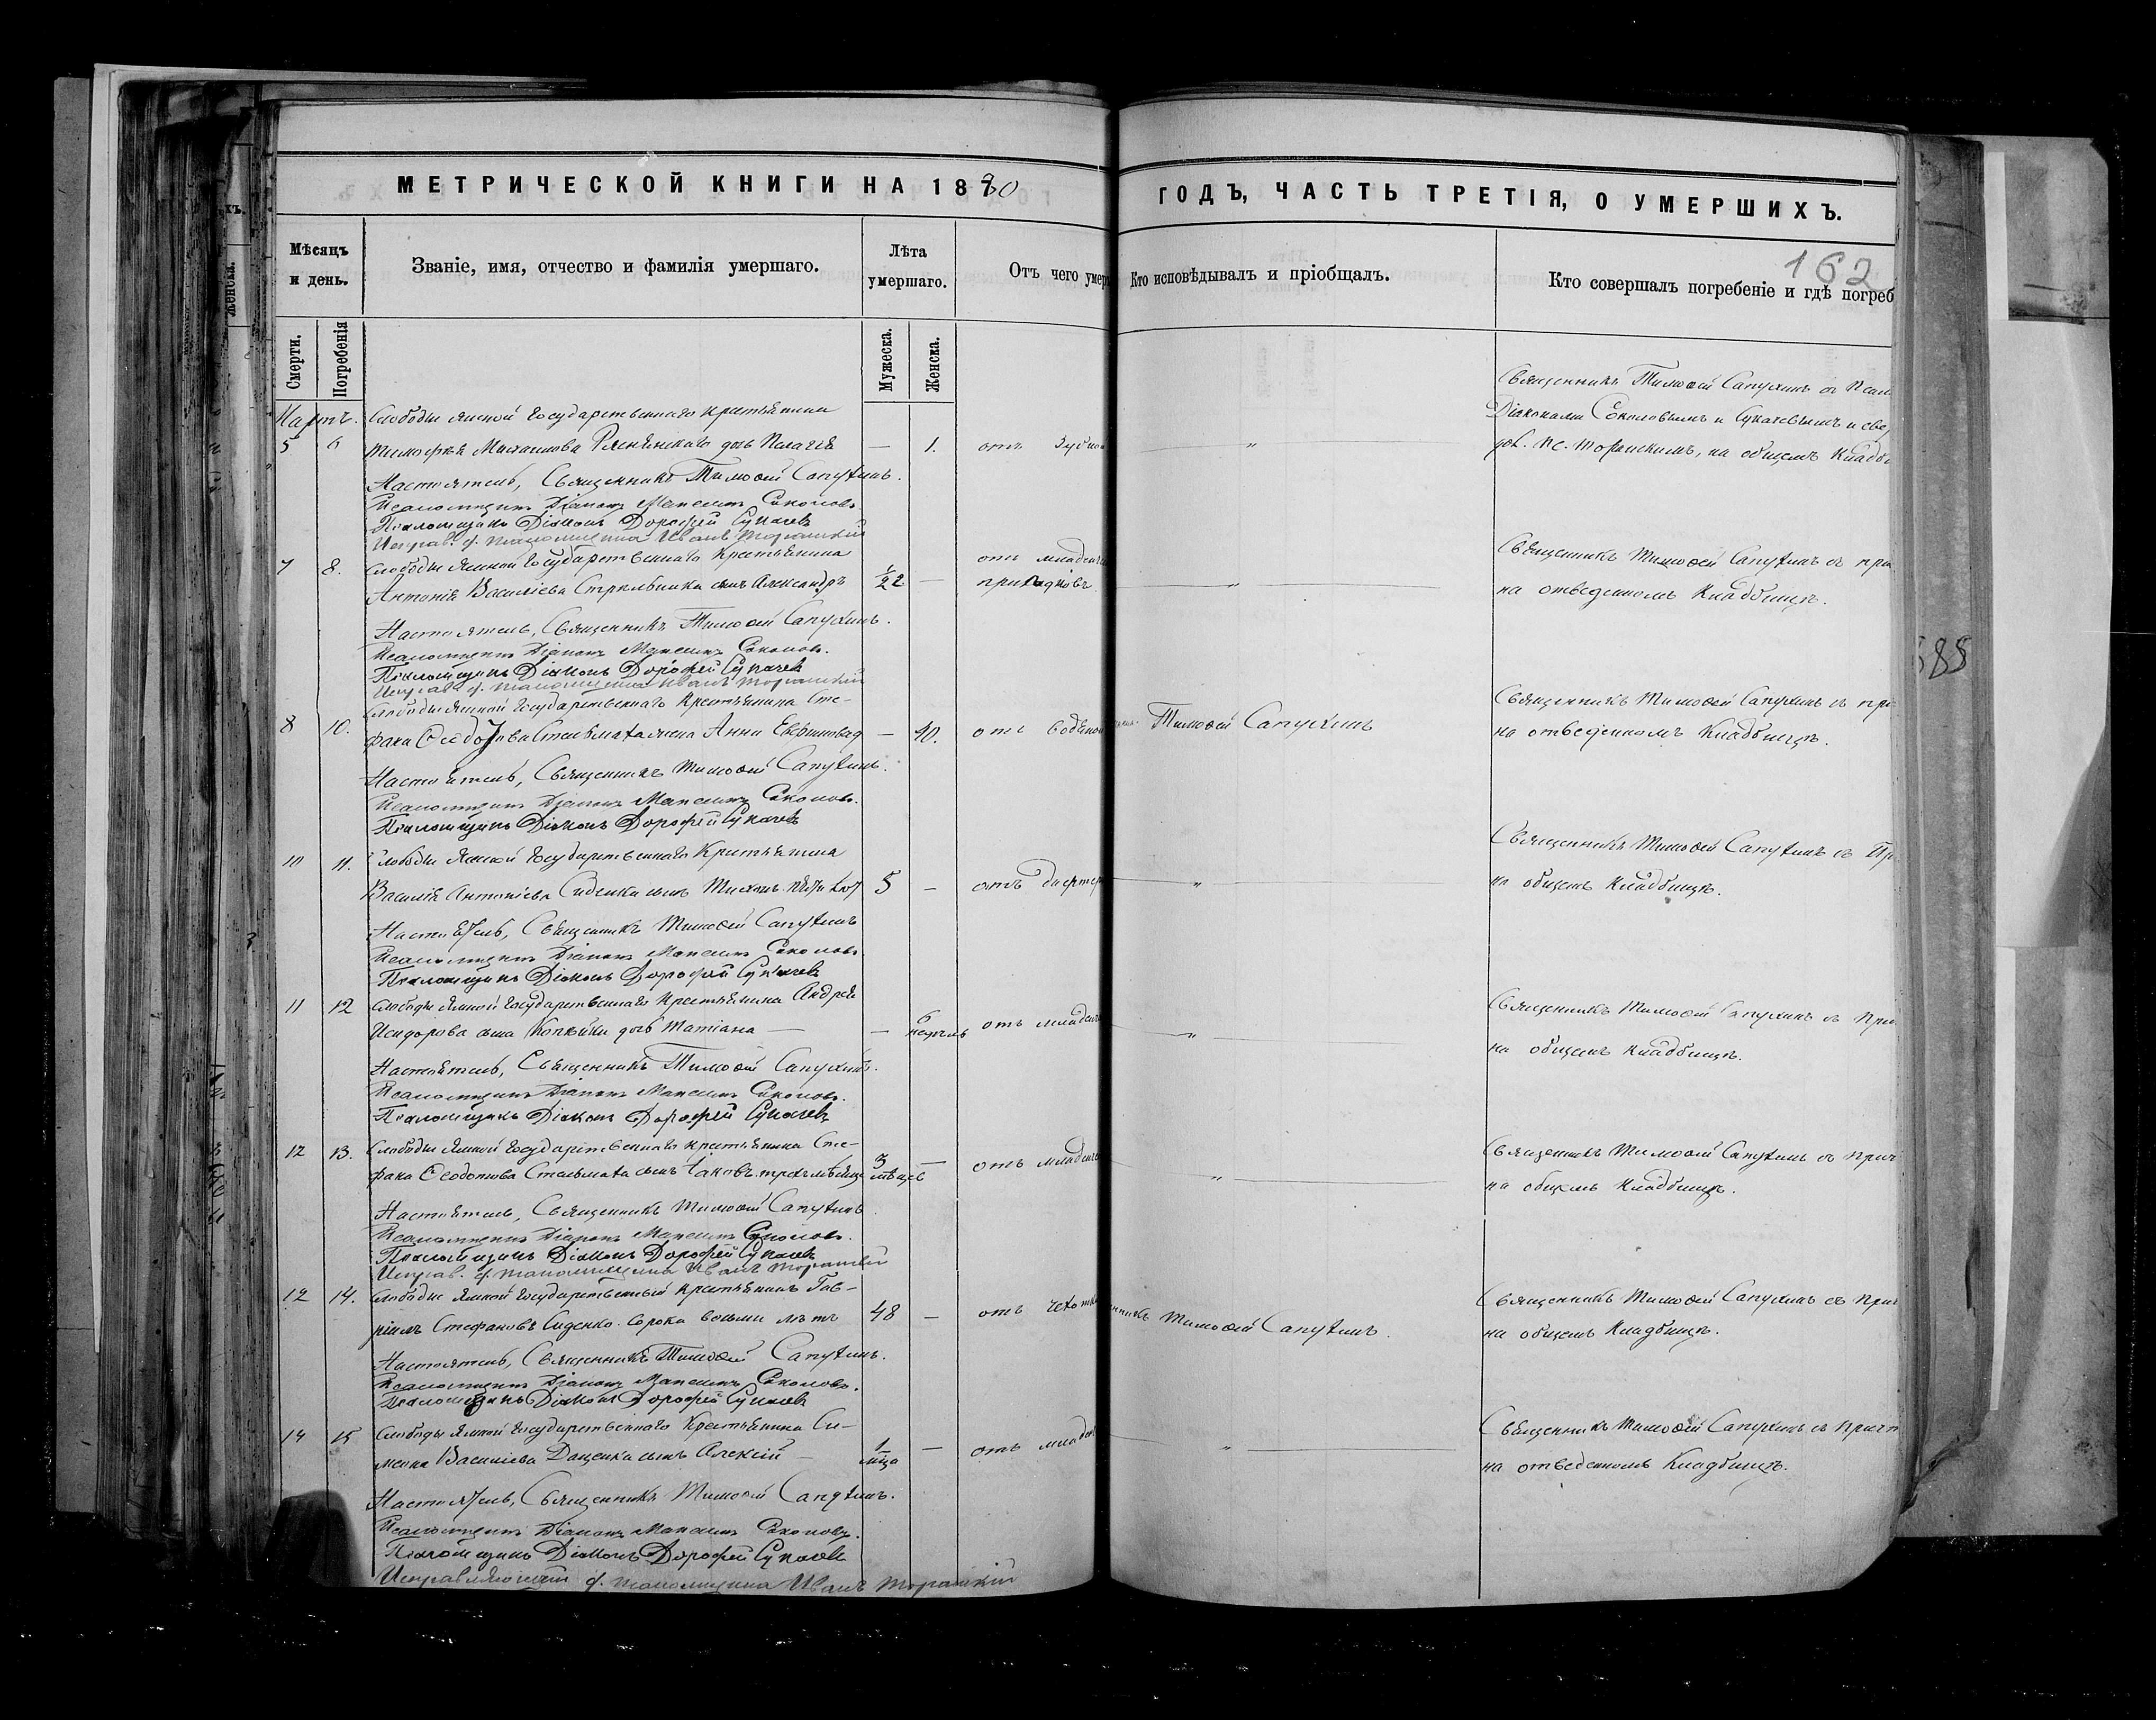 МЕТРИЧЕСКОЙ КНИГИ НА 1880
ГОДЪ, ЧАСТЬ ТРЕТІЯ, О УМЕРШИХЪ.
162
Мѣсяцъ и день.
Званіе, имя, отчество и фамилія умершаго.
Лѣта умершаго.
Отъ чего умер
Кто исповѣдывалъ и пріобщалъ.
Кто совершалъ погребеніе и гдѣ погреб
Смерти.
Погребенія
Мужеска.
Женска.
Мартъ. Слободы Ямной Государственнаго крестьянина
5 6 Тимофея Михаилова дочь Пелагея — 1. отъ
Священникъ Тимофей Сапухинъ съ
Діаконами Соколовымъ и Сукачевымъ и
Торанскимъ, на общемъ кладби
Настоятель, Священникъ Тимофей Сапухинъ.
Псаломщикъ Діаконъ Максимъ Соколовъ.
Псаломщикъ Діаконъ Дорофей Сукачевъ
Исправ. д. псаломщика Иванъ Торанскій
7 8. Слободы Ямной Государственнаго Крестьянина
Антонія Василіева Стрельника сынъ Александръ 1/2 — отъ младенче
припадковъ
Священникъ Тимофей Сапухинъ съ при
на отведенномъ Кладбищѣ.
Настоятель, Священникъ Тимофей Сапухинъ.
Псаломщикъ Діаконъ Максимъ Соколовъ.
Псаломщикъ Діаконъ Дорофей Сукачевъ
Исправ. д. псаломщика Иванъ Торанскій
Слободы Ямной Государственнаго Крестьянина Сте-
8 10. фана Стельмаха жена Анна — 40. отъ водяной
Тимофей Сапухинъ
Священникъ Тимофей Сапухинъ съ при
на отведенномъ Кладбищѣ.
Настоятель, Священникъ Тимофей Сапухинъ.
Псаломщикъ Діаконъ Максимъ Соколовъ.
Псаломщикъ Діаконъ Дорофей Сукачевъ
10 11. Слободы Ямной Государственнаго Крестьянина
Василія Антоніева Сиденка сынъ 5 — отъ дифтер
Священникъ Тимофей Сапухинъ съ Пр
на общемъ кладбищѣ.
Настоятель, Священникъ Тимофей Сапухинъ
Псаломщикъ Діаконъ Максимъ Соколовъ.
Псаломщикъ Діаконъ Дорофей Сукачевъ
11 12 Слободы Ямной Государственнаго Крестьянина Андрея
Исидорова сына Копѣйки дочь Татіана — — 6 недѣль отъ младен
Священникъ Тимофей Сапухинъ съ При
на общемъ кладбищѣ.
Настоятель, Священникъ Тимофей Сапухинъ.
Псаломщикъ Діаконъ Максимъ Соколовъ.
Псаломщикъ Діаконъ Дорофей Сукачевъ
12 13. Слободы Ямной Государственнаго крестьянина Сте-
фана Стельмаха сынъ Іаковъ 3 мѣсяцевъ — отъ младенче
Священникъ Тимофей Сапухинъ съ Прич
на общемъ Кладбищѣ.
Настоятель, Священникъ Тимофей Сапухинъ
Псаломщикъ Діаконъ Максимъ Соколовъ.
Псаломщикъ Діаконъ Дорофей Сукачевъ
Исправ. д. псаломщика Иванъ Торанскій
12 14. Слободы Ямной Государственный Крестьянинъ Гав-
ріилъ Стефановъ Сиденко. Сорока восьми лѣтъ 48 — отъ чахотки
нникъ Тимофей Сапухинъ.
Священникъ Тимофей Сапухинъ съ При
на общемъ Кладбищѣ.
Настоятель, Священникъ Тимофей Сапухинъ.
Псаломщикъ Діаконъ Максимъ Соколовъ.
Псаломщикъ Діаконъ Дорофей Сукачевъ
14 15 Слободы Ямной Государственнаго Крестьянина Си-
меона Василіева Даценка сынъ Алексій — 1 м-ца — отъ младен
Священникъ Тимофей Сапухинъ съ Прич
на отведенномъ Кладбищѣ.
Настоятель, Священникъ Тимофей Сапухинъ.
Псаломщикъ Діаконъ Максимъ Соколовъ.
Псаломщикъ Діаконъ Дорофей Сукачевъ
Исправляющій д. псаломщика Иванъ Торанскій